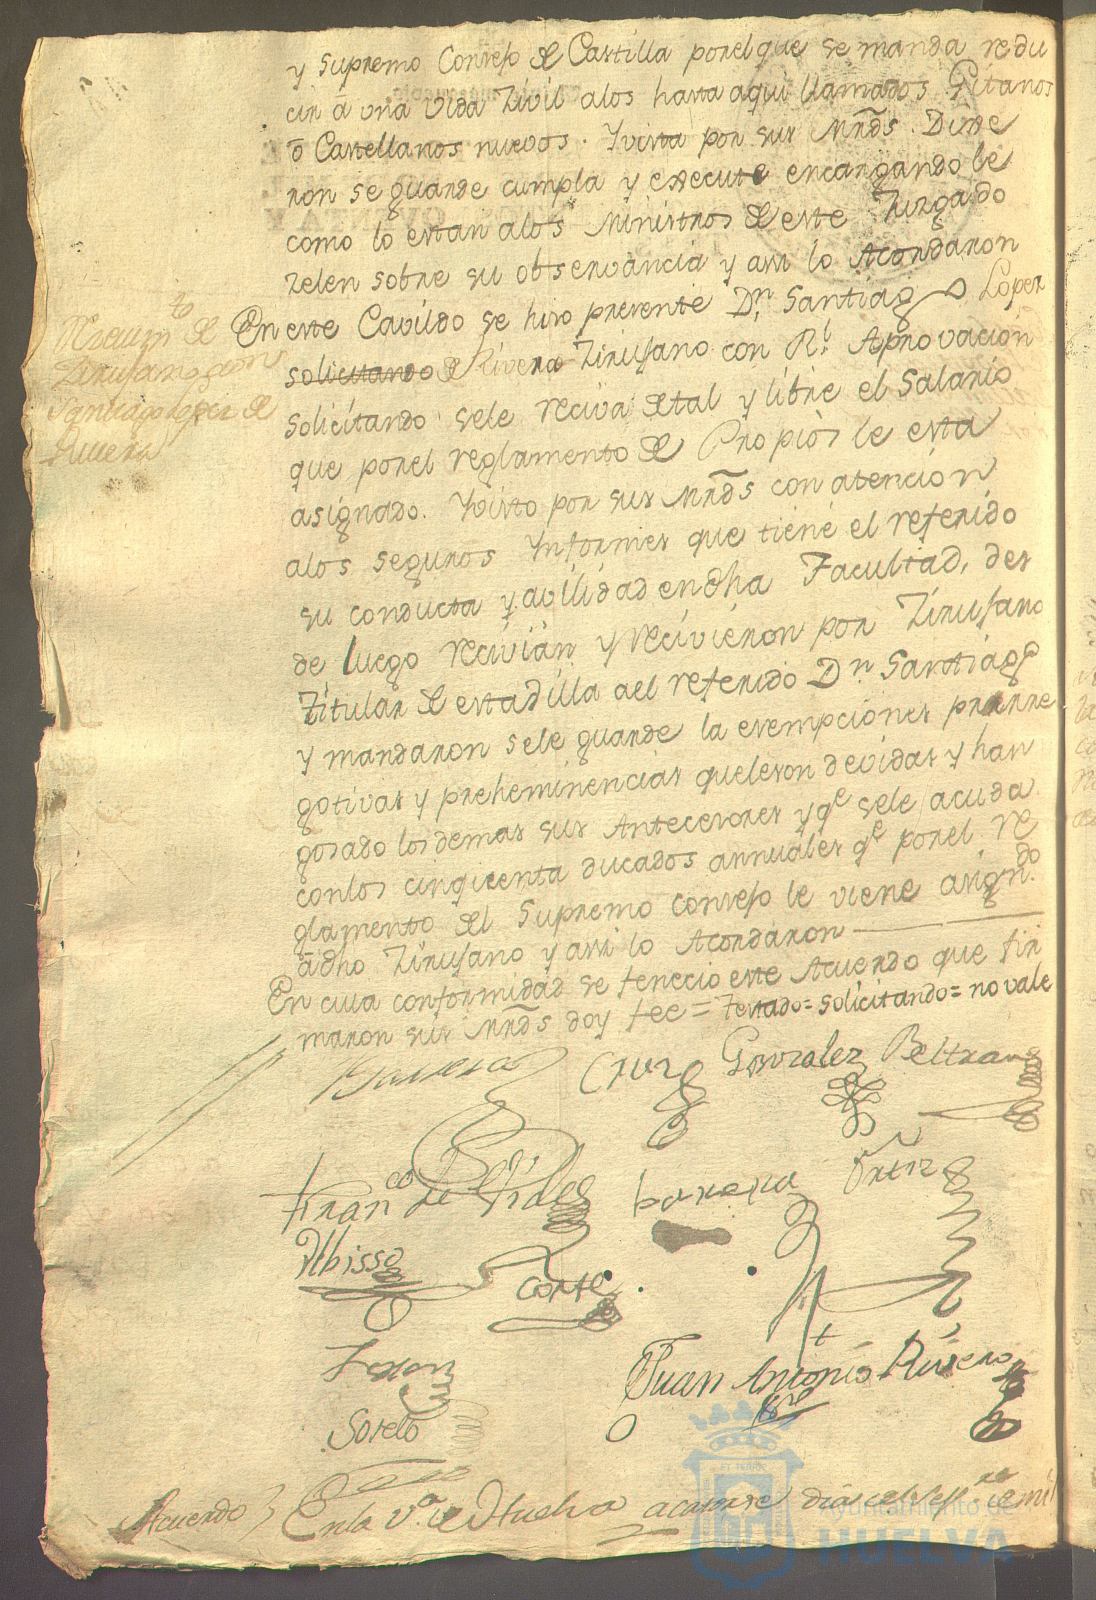 y supremo Consejo de Castilla por el que se manda redu
cir ā una vida Zivil alos hasta aqui llamados Gitanos
ō Castellanos nuevos. Yvista por sus Mrds. Dixe
ron se guarde cumpla y execute encargando le
como lo estan alos Ministros de este Juzgado
zelen sobre su observancia y assi lo Acordaron
En este Cavildo se hizo presente Dn. Santiago Lopez
solicitando de Rivera Zirujano con Rl. Aprovacion
solicitando sele reciva de tal y libre el salario
que por el reglamento de Propios le esta
asignado. Yvisto por sus Mrds con atencion
alos seguros Ynformes que tiene el referido
su conducta y avilidad en dha Facultad, des
de luego recivian y recivieron por Zirujano
Titular de esta Villa a el referido Dn Santiago
y mandaron sele guarde la exempciones prerre
gotivas y preheminencias que le son devidas y han
gosado los demas sus Antecesores y qe sele acuda
con los cinquenta ducados annuales qe por el re
glamento del Supremo consejo le viene asigndo
ā dho Zirujano y assi lo Acordaron
En cuia conformidad se fenecio este Acuerdo que fir
maron sus Mrds doy fee = testado = solicitando = no vale
Reciumto de
Zirujano con
Santiago Lopez de
Rivera
Cruz Gonzalez Beltran
Franco de Vides Barrera Ortiz
Abisso Corte
Sotelo
Juan Antonio Rivero
Acuerdo
En la Va. de Huelva a catorse dias del
Ayuntamiento de
HUELVA